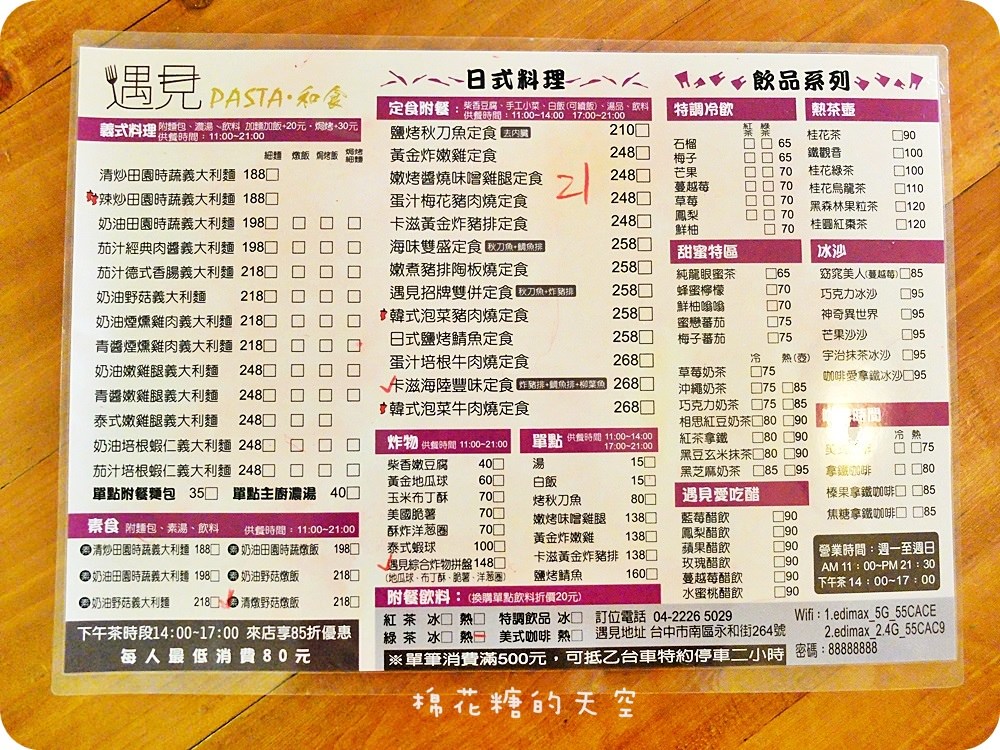 遇見 PASTA·和食
義式料理 附麵包、濃湯、飲料 加麵加飯+20元、焗烤+30元
供餐時間：11:00~21:00
細麵 燉飯 焗烤飯 焗烤細麵
清炒田園時蔬義大利麵 188□
辣炒田園時蔬義大利麵 188□
奶油田園時蔬義大利麵 198□ □ □ □
茄汁經典肉醬義大利麵 198□ □ □ □
茄汁德式香腸義大利麵 218□ □ □ □
奶油野菇義大利麵 218□ □ □ □
奶油煙燻雞肉義大利麵 218□ □ □ □
青醬煙燻雞肉義大利麵 218□ □ □ □
奶油嫩雞腿義大利麵 248□ □ □ □
青醬嫩雞腿義大利麵 248□ □ □ □
泰式嫩雞腿義大利麵 248□ □ □
奶油培根蝦仁義大利麵 248□ □ □ □
茄汁培根蝦仁義大利麵 248□ □ □ □
單點附餐麵包 35□ 單點主廚濃湯 40□
素食 附麵包、素湯、飲料 供餐時間：11:00~21:00
素 清炒田園時蔬義大利麵 188□ 素 奶油田園時蔬燉飯 198□
素 奶油田園時蔬義大利麵 198□ 素 奶油野菇燉飯 218□
素 奶油野菇義大利麵 218□ 素 清燉野菇燉飯 218□
下午茶時段14:00-17:00 來店享85折優惠
每人最低消費80元
日式料理
定食附餐：柴香豆腐、手工小菜、白飯(可續飯)、湯品、飲料
供餐時間：11:00~14:00 17:00~21:00
鹽烤秋刀魚定食 去內臟 210□
黃金炸嫩雞定食 248□
嫩烤醬燒味噌雞腿定食 248□
21
蛋汁梅花豬肉燒定食 248□
卡滋黃金炸豬排定食 248□
海味雙盛定食 秋刀魚+鯛魚排 258□
嫩煮豬排陶板燒定食 258□
遇見招牌雙併定食 秋刀魚+炸豬排 258□
韓式泡菜豬肉燒定食 258□
日式鹽烤鯖魚定食 258□
蛋汁培根牛肉燒定食 268□
卡滋海陸豐味定食 炸豬排+鯛魚排+柳葉魚 268□
韓式泡菜牛肉燒定食 268□
炸物 供餐時間 11:00~21:00
柴香嫩豆腐 40□
黃金地瓜球 60□
玉米布丁酥 70□
美國脆薯 70□
酥炸洋蔥圈 70□
泰式蝦球 100□
遇見綜合炸物拼盤 148□
(地瓜球、布丁酥、脆薯、洋蔥圈)
單點 供餐時間 11:00~14:00
17:00~21:00
湯 15□
白飯 15□
烤秋刀魚 80□
嫩烤味噌雞腿 138□
黃金炸嫩雞 138□
卡滋黃金炸豬排 138□
鹽烤鯖魚 160□
附餐飲料：(換購單點飲料折價20元)
紅茶 冰□ 熱□ 特調飲品 冰□
綠茶 冰□ 熱□ 美式咖啡 熱□
訂位電話 04-2226 5029
遇見地址 台中市南區永和街264號
※單筆消費滿500元，可抵乙台車特約停車二小時
飲品系列
特調冷飲
紅茶 綠茶
石榴 □ □ 65
梅子 □ □ 65
芒果 □ □ 70
蔓越莓 □ □ 70
草莓 □ □ 70
鳳梨 □ □ 70
鮮柚 □ 70
甜蜜特區
純龍眼蜜茶 □65
蜂蜜檸檬 □70
鮮柚嗡嗡 □70
蜜戀蕃茄 □75
梅子蕃茄 □75
冷 熱(壺)
草莓奶茶 □75
沖繩奶茶 □75 □85
巧克力奶茶 □75 □85
相思紅豆奶茶 □80 □90
紅茶拿鐵 □80 □90
黑豆玄米抹茶 □80 □90
黑芝麻奶茶 □85 □95
遇見愛吃醋
藍莓醋飲 □90
鳳梨醋飲 □90
蘋果醋飲 □90
玫瑰醋飲 □90
蔓越莓醋飲 □90
水蜜桃醋飲 □90
熱茶壺
桂花茶 □90
鐵觀音 □100
桂花綠茶 □100
桂花烏龍茶 □110
黑森林果粒茶 □120
桂圓紅棗茶 □120
冰沙
窈窕美人(蔓越莓) □85
巧克力冰沙 □95
神奇異世界 □95
芒果沙沙 □95
宇治抹茶冰沙 □95
咖啡愛拿鐵冰沙 □95
時間
冷 熱
咖啡 □ □75
拿鐵咖啡 □ □80
榛果拿鐵咖啡 □ □85
焦糖拿鐵咖啡 □ □85
營業時間：週一至週日
AM 11：00~PM 21：30
下午茶 14：00~17：00
Wifi：1.edimax_5G_55CACE
2.edimax_2.4G_55CAC9
密碼：88888888
棉花糖的天空